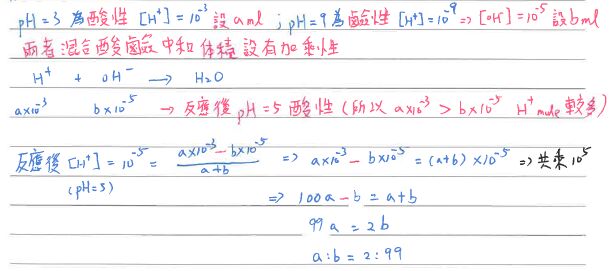 pH=3 為酸性 [H⁺]=10⁻³ 設 a ml ; pH=9 為鹼性 [H⁺]=10⁻⁹ => [OH⁻]=10⁻⁵ 設 b ml
兩者混合酸鹼中和 体積設有加乘性
H⁺ + OH⁻ → H₂O
a×10⁻³ b×10⁻⁵ → 反應後 pH=5 酸性 (所以 a×10⁻³ > b×10⁻⁵ H⁺ mole 較多)
反應後 [H⁺] = 10⁻⁵ = (a×10⁻³ - b×10⁻⁵)/(a+b) => a×10⁻³ - b×10⁻⁵ = (a+b)×10⁻⁵ => 共乘 10⁵
(pH=5)
=> 100a - b = a+b
99a = 2b
a:b = 2:99